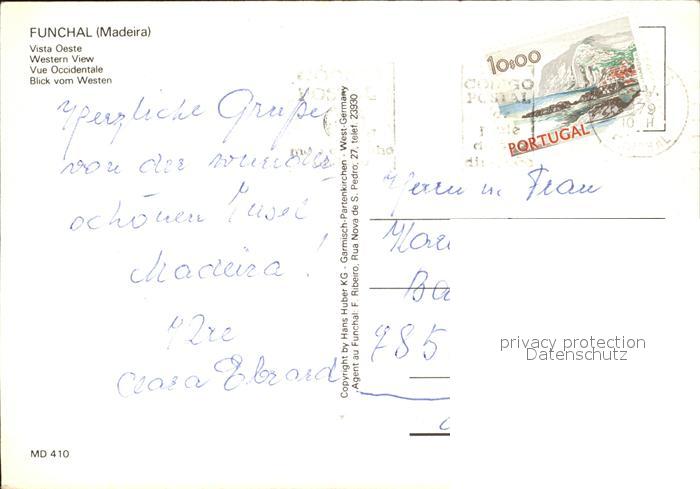 FUNCHAL (Madeira)
Vista Oeste
Western View
Vue Occidentale
Blick vom Westen
Herzliche Grüße
von der wunder
schönen Insel
Madeira!
Ihre
Clara
MD 410
Copyright by Hans Huber KG - Garmisch-Partenkirchen - West-Germany
Agent au Funchal: F. Ribeiro, Rua Nova de S. Pedro, 27, telef. 23930
10$00
PORTUGAL
CODIGO
POSTAL
79
Herrn u. Frau
Kar
Ba
785
privacy protection
Datenschutz